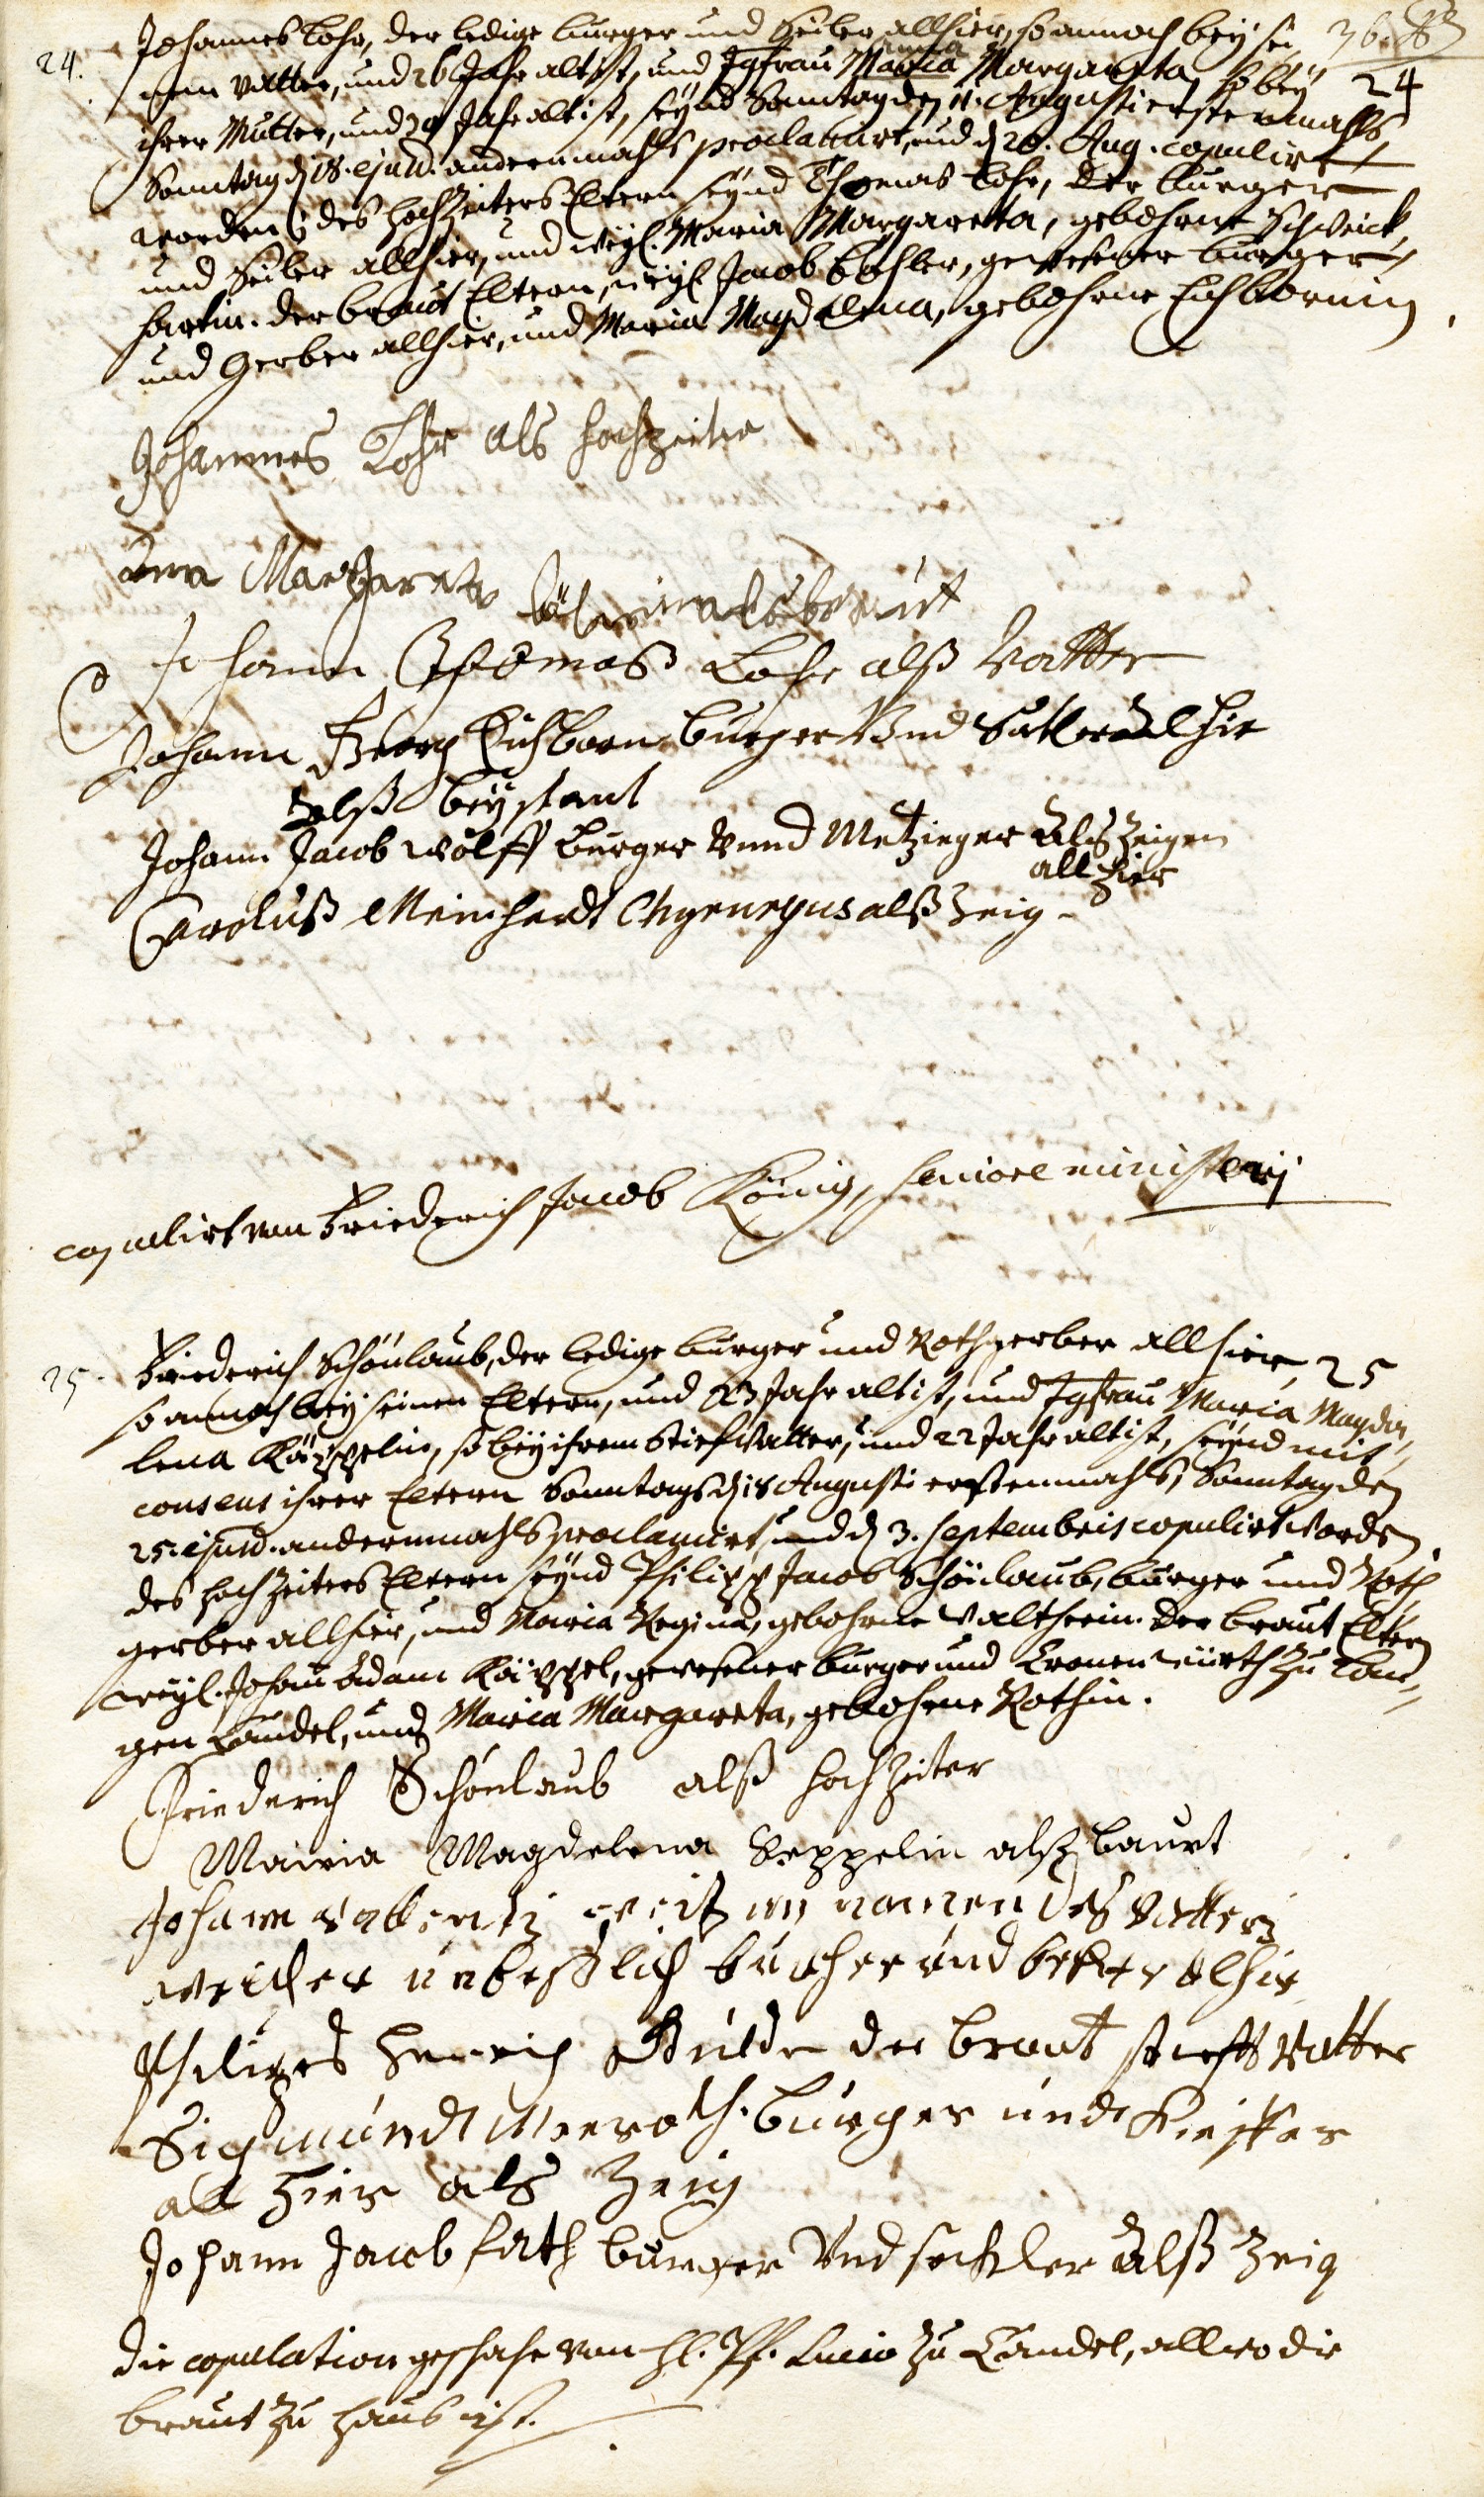 36.
24. Johannes Lohr, der ledige burger und Seiler allhier, so annoch bey sei,
nem Vatter, und 26 Jahr alt ist, und Jgfrau Maria Anna Margareta, so bey 24
ihrer Mutter, und Jahr alt ist, seynd Sonntag den 11. Augusti erstenmahls,
Sonntag d. 18. ejusd. andernmahls proclamirt, und d. 20. Aug. copulirt
worden; des Hochzeiters Eltern seynd Thomas Lohr, der burger
und Seiler allhier, und weyl. Maria Margareta, gebohrne Schweick,
hartin. der braut Eltern, weyl. Jacob Böhler, gewesener burger
und Gerber allhier, und Maria Magdalena, gebohrne Eichbornin.
Johannes Lohr als hochzeiter
Anna Margareta als braut
Johann Thomaß Lohr alß Vatter
Johann Georg Eichborn burger Vnd Satler alhie
alß beystant
Johann Jacob Wolff burger Vnnd Metzieger Als Zeigen
allhier
Carolus Meinhardt alß Zeig
copulirt von Friederich Jacob König, seniore ministerij
25. Friederich Schönlaub, der ledige burger und Rothgerber allhier, 25
so annoch bey seinen Eltern, und 23 Jahr alt ist, und Jgfrau Maria Magda,
lena Käppelin, so bey ihrem Stiefvatter, und 22 Jahr alt ist, seynd mit
consens ihrer Eltern Sonntags d. 18 Augusti erstenmahls, Sonntag den
25. ejusd. andernmahls proclamirt, und d. 3. Septembris copulirt worden.
des Hochzeiters Eltern seynd Philipp Jacob Schönlaub, burger und Roth,
gerber allhier, und Maria Regina, gebohrne Waltherin. der braut Eltern
weyl. Johann Adam Käppel, gewesener burger und Cronenwürth zu Lan,
gen Candel, und Maria Margareta, gebohrne Rothin.
Friederich Schönlaub alß Hochzeiter
Maria Magdelena Keppelin alß baurt
Johann weiß im namen des Vatters
welcher unbeßlich burher und beker alhie
Philipes Henrich der braut stieff Vatter
Sigmundt burger und Kieffer
all hier als Zeig
Johann Jacob fath burger Vnd seckler Alß Zeig
die copulation geschahe von Hl. Pf. Lucio zu Candel, allwo die
braut zu Haus ist.